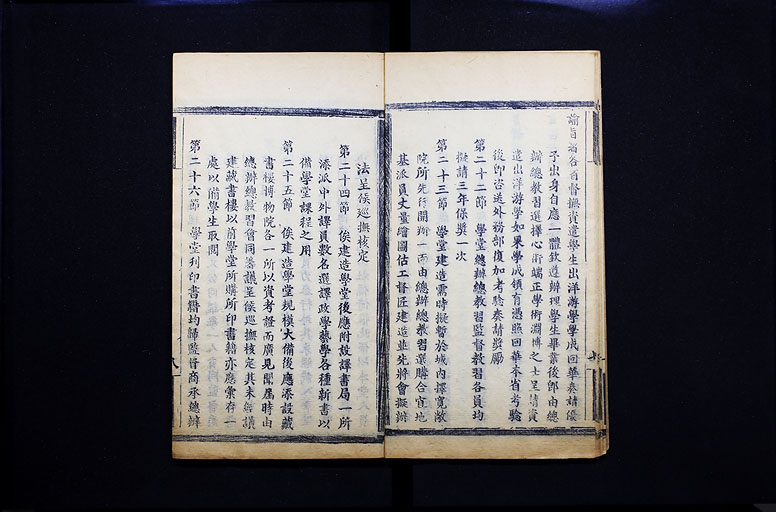 諭旨飭各省督撫資遣學生出洋游學學成回華奏請優
予出身自應一體欽遵辦理學生畢業後卽由總
辦總教習選擇心術端正學術淵博之士呈請資
遣出洋游學如果學成領有憑照回華本省考驗
後卽咨送外務部復加考驗奏請獎勵
第二十二節 學堂總辦總教習監督教習各員均
擬請三年保獎一次
第二十三節 學堂建造需時擬暫於城內擇寬敞
院所先行開辦一面由總辦總教習選購合宜地
基派員丈量繪圖估工督匠建造並先將會擬辦
法呈候巡撫核定
第二十四節 俟建造學堂後應附設譯書局一所
添派中外譯員數名選譯政學藝學各種新書以
備學堂課程之用
第二十五節 俟建造學堂規模大備後應添設藏
書樓博物院各一所以資考證而廣見聞屆時由
總辦總教習會同籌議呈候巡撫核定其未經議
建藏書樓以前學堂所購所印書籍亦應彙存一
處以備學生取閱
第二十六節 學堂刋印書籍均歸監督商承總辦